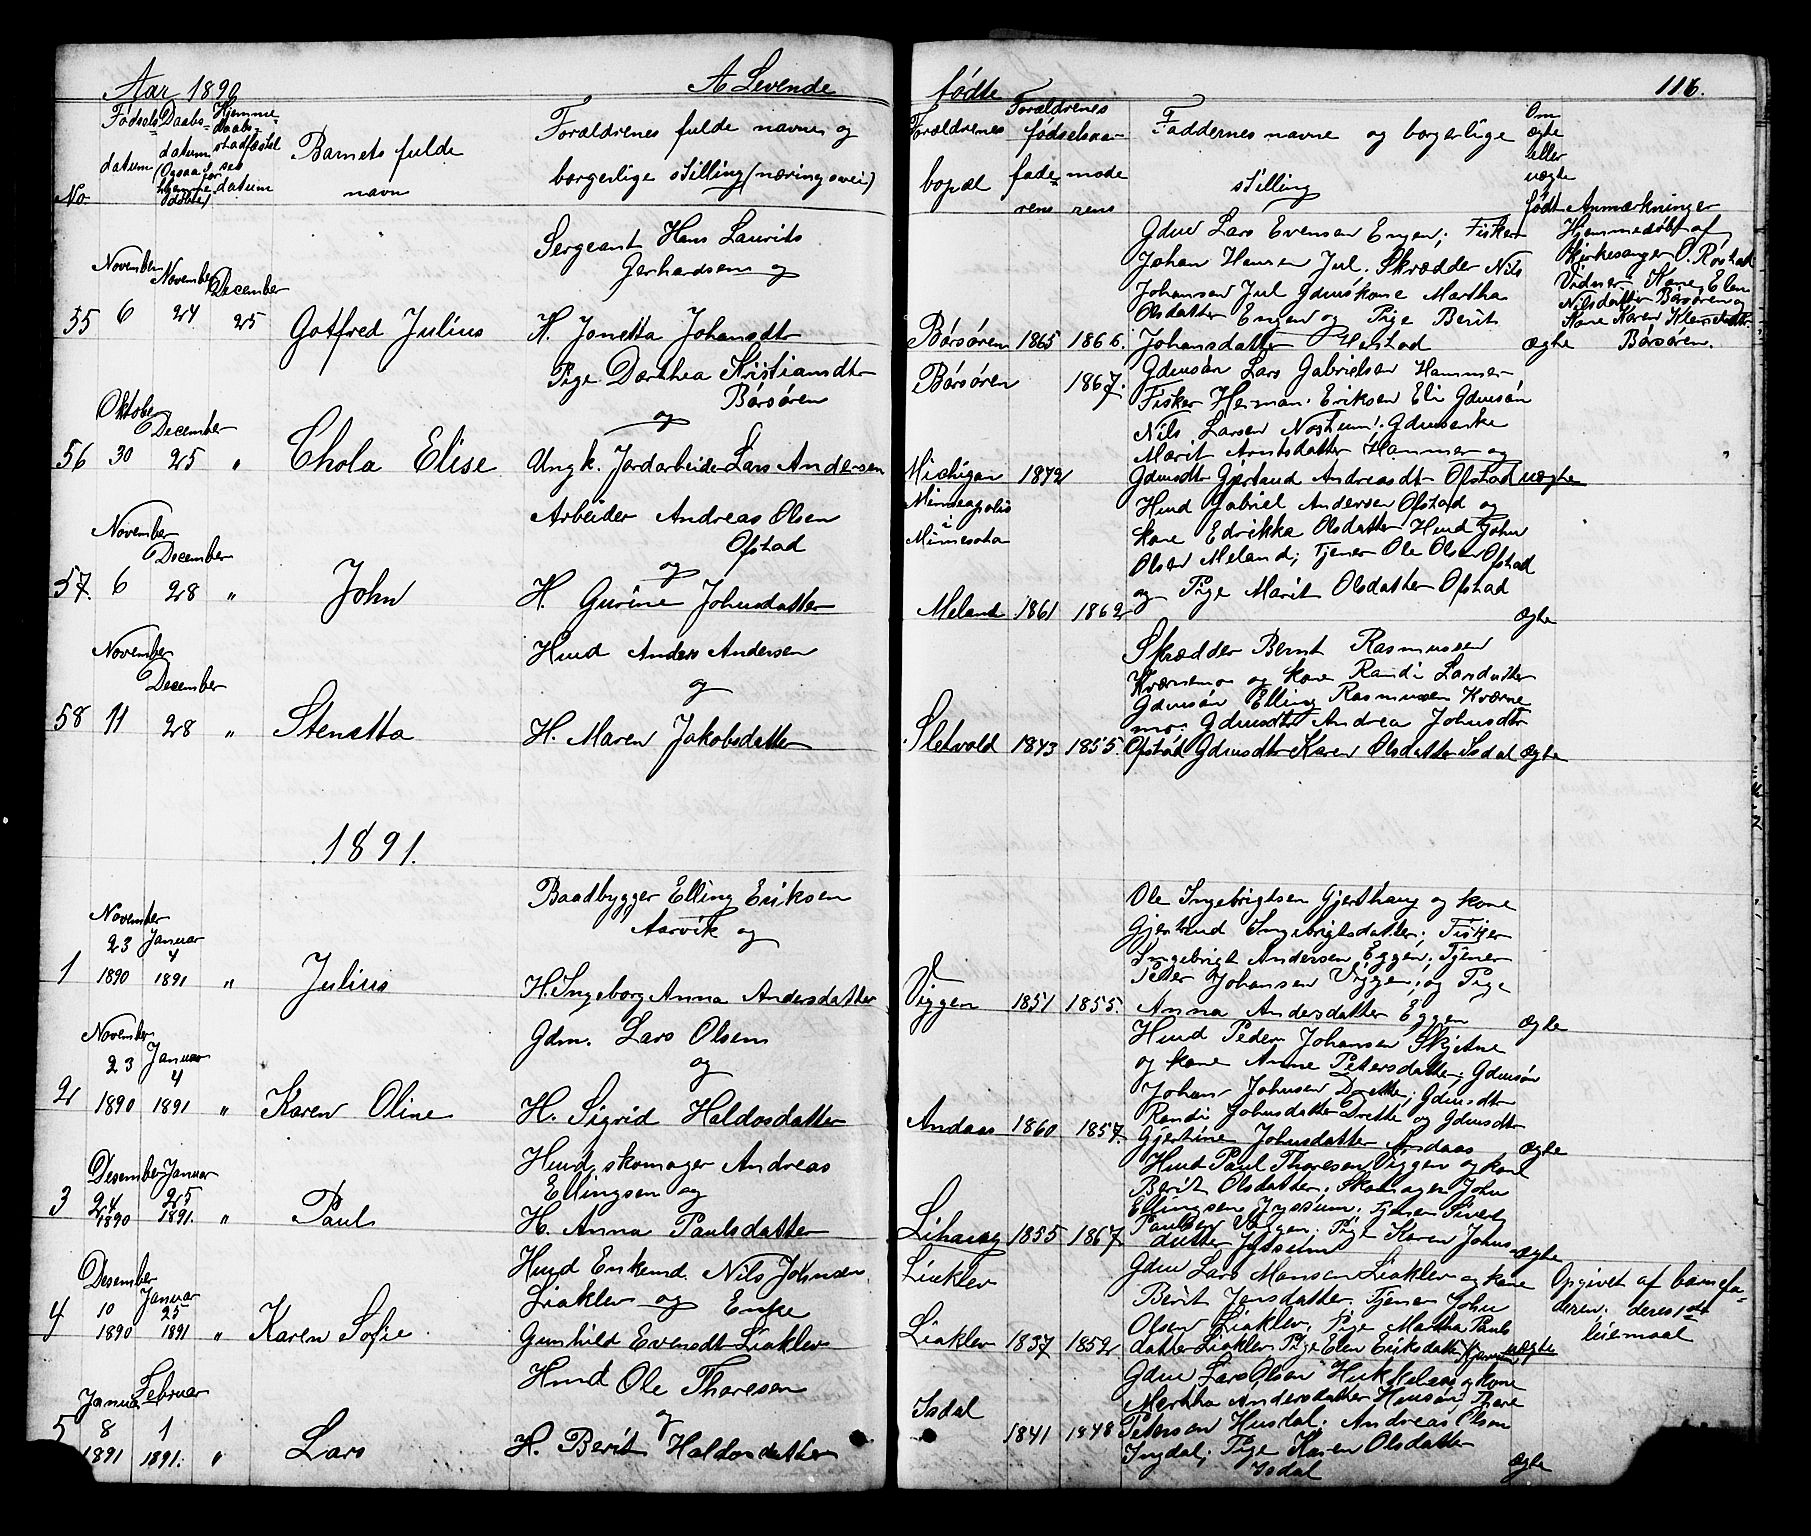 Aar 1890 A Levende fødte 116.
No. Fødsels datum Daabs datum (Ogsaa for hjemmedøbte) Hjemmedaabs stadfæstelses datum Barnets fulde navn Forældrenes fulde navne og borgerlige stilling (næringsvei) Forældrenes bopæl Forældrenes fødselsaar faderens moderens Faddernes navne og borgerlige stilling Om ægte eller uægte født Anmærkninger
55 November 6 November 24 December 25 Gotfred Julius
Sergeant Hans Laurits
Gerhardsen og
H. Jonetta Johansdtr
Børsøren 1865 1866.
Gdm Lars Evensen Engen; Fisker
Johan Hansen Jul. Skrædder Nils
Johansen Jul Gdmskone Martha
Olsdatter Engen og Pige Berit
Johansdatter Herstad ægte
Hjemmedøbt af
Kirkesanger O. Rostad
Vidner Kone Elen
Nilsdatter Børsøren og
Kone Karen
Børsøren.
56 Oktober 30 December 25 " Thola Elise
Pige Dorthea Kristiansdtr
Børsøren
og
Ungk. Jordarbeider Lars Andersen
Børsøren 1867.
Michigan 1872
Gdmsøn Lars Gabrielsen Hammer
Fisker Herman Eriksen Eli Gdmsøn
Nils Larsen Gdmsenke
Marit Arntsdatter Hammer og
Gdmsdt Gjertrud Andreasdt Ofstad uægte
57. November 6 December 28 " John
Arbeider Andreas Olsen
Ofstad
og
H. Gurine Johnsdatter
Minneapolis
i
Minnesota
Meland 1861 1862
Hmd Gabriel Andersen Ofstad og
kone Edrikka Olsdatter Hmd John
Olsen Meland; Tjener Ole Olsen Ofstad
og Pige Marit Olsdatter Ofstad
ægte
58 November 11 December 28 " Stenetta
Hmd Anders Andersen
og
H. Maren Jakobsdatter
Sletvold 1843 1855.
Skrædder Bernt Rasmussen
Kværnemo og kone Randi Larsdatter
Gdmsøn Elling Rasmussen Kværne
mo. Gdmsdtr Andrea Johnsdtr
Ofstad Gdmsdtr Karen Olsdatter Isdal ægte
1891.
1 November 23 1890 Januar 4 1891 " Julius
Baadbygger Elling Eriksen
Aarvik og
H. Ingeborg Anna Andersdatter
Viggen 1851 1855.
Ole Ingebrigtsen Gjerthaug og kone
Gjertrud Ingebrigtsdatter; Fisker
Ingebrigt Andersen Eggen; Tjener
Peter Johansen Viggen; og Pige
Anna Andersdatter Eggen ægte
2 November 23 1890 Januar 4 1891 " Karen Oline
Gdm. Lars Olsen
og
H. Sigrid Haldosdatter
Andaas 1860 1857.
Hmd Peder Johansen Skjetne
og kone Anne Petersdatter; Gdmsøn
Johan Johnsen Drette; Gdmsdtr
Randi Johnsdatter Drette og Gdmsdtr
Gjertine Johnsdatter Andaas ægte
3 Desember 24 1890 Januar 25 1891. " Paul
Hmd, skomager Andreas
Ellingsen og
H. Anna Paulsdatter
Lihaug 1855 1867
Hmd Paul Thoresen Viggen og kone
Berit Olsdatter. Skomager John
Ellingsen Jyssum. Tjener Sivert
Paulsen Viggen. Pige Karen Johns
datter Jyssum ægte
4 Desember 10 1890 Januar 25 1891 " Karen Sofie
Hmd Enkemd. Nils Johnsen
Liaklev og Enke
Gunhild Evensdt Liaklev
Liaklev
Liaklev 1837 1852
Gdm Lars Monsen Liaklev og kone
Berit Jensdatter. Tjener John
Olsen Liaklev, Pige Martha Pauls
datter Liaklev Pige Elen Eriksdatter uægte
Opgivet af barnefa-
deren. deres 1ste
leiermaal
5 Januar 8 1891 Februar 1 1891. " Lars
Hmd Ole Thoresen
og
H. Berit Haldosdatter
Isdal
1841 1848
Gdm Lars Olsen og kone
Martha Andersdatter Hmsøn Thore
Petersen Husdal. Andreas Olsen
Ingdal; Pige Karen Olsdatter
Isdal ægte